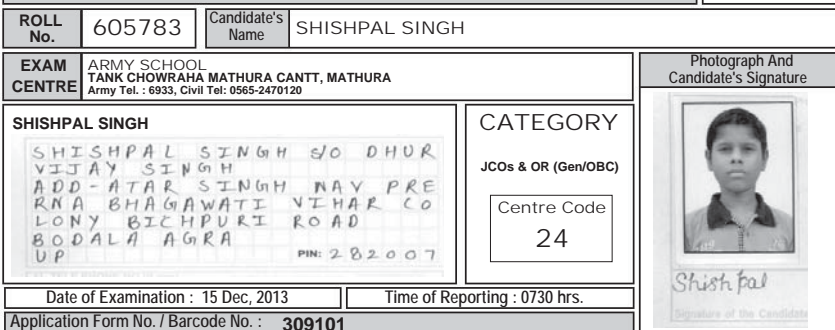 ROLL No. 605783 Candidate's Name SHISHPAL SINGH
EXAM CENTRE
ARMY SCHOOL
TANK CHOWRAHA MATHURA CANTT, MATHURA
Army Tel. : 6933, Civil Tel: 0565-2470120
Photograph And
Candidate's Signature
SHISHPAL SINGH
SHISHPAL SINGH S/O DHUR
VIJAY SINGH
ADD-ATAR SINGH NAV PRE
RNA BHAGAWATI VIHAR CO
LONY BICHPURI ROAD
BODALA AGRA
UP PIN: 282007
CATEGORY
JCOs & OR (Gen/OBC)
Centre Code
24
Shishpal
Signature of the Candidate
Date of Examination : 15 Dec, 2013 Time of Reporting : 0730 hrs.
Application Form No. / Barcode No. : 309101